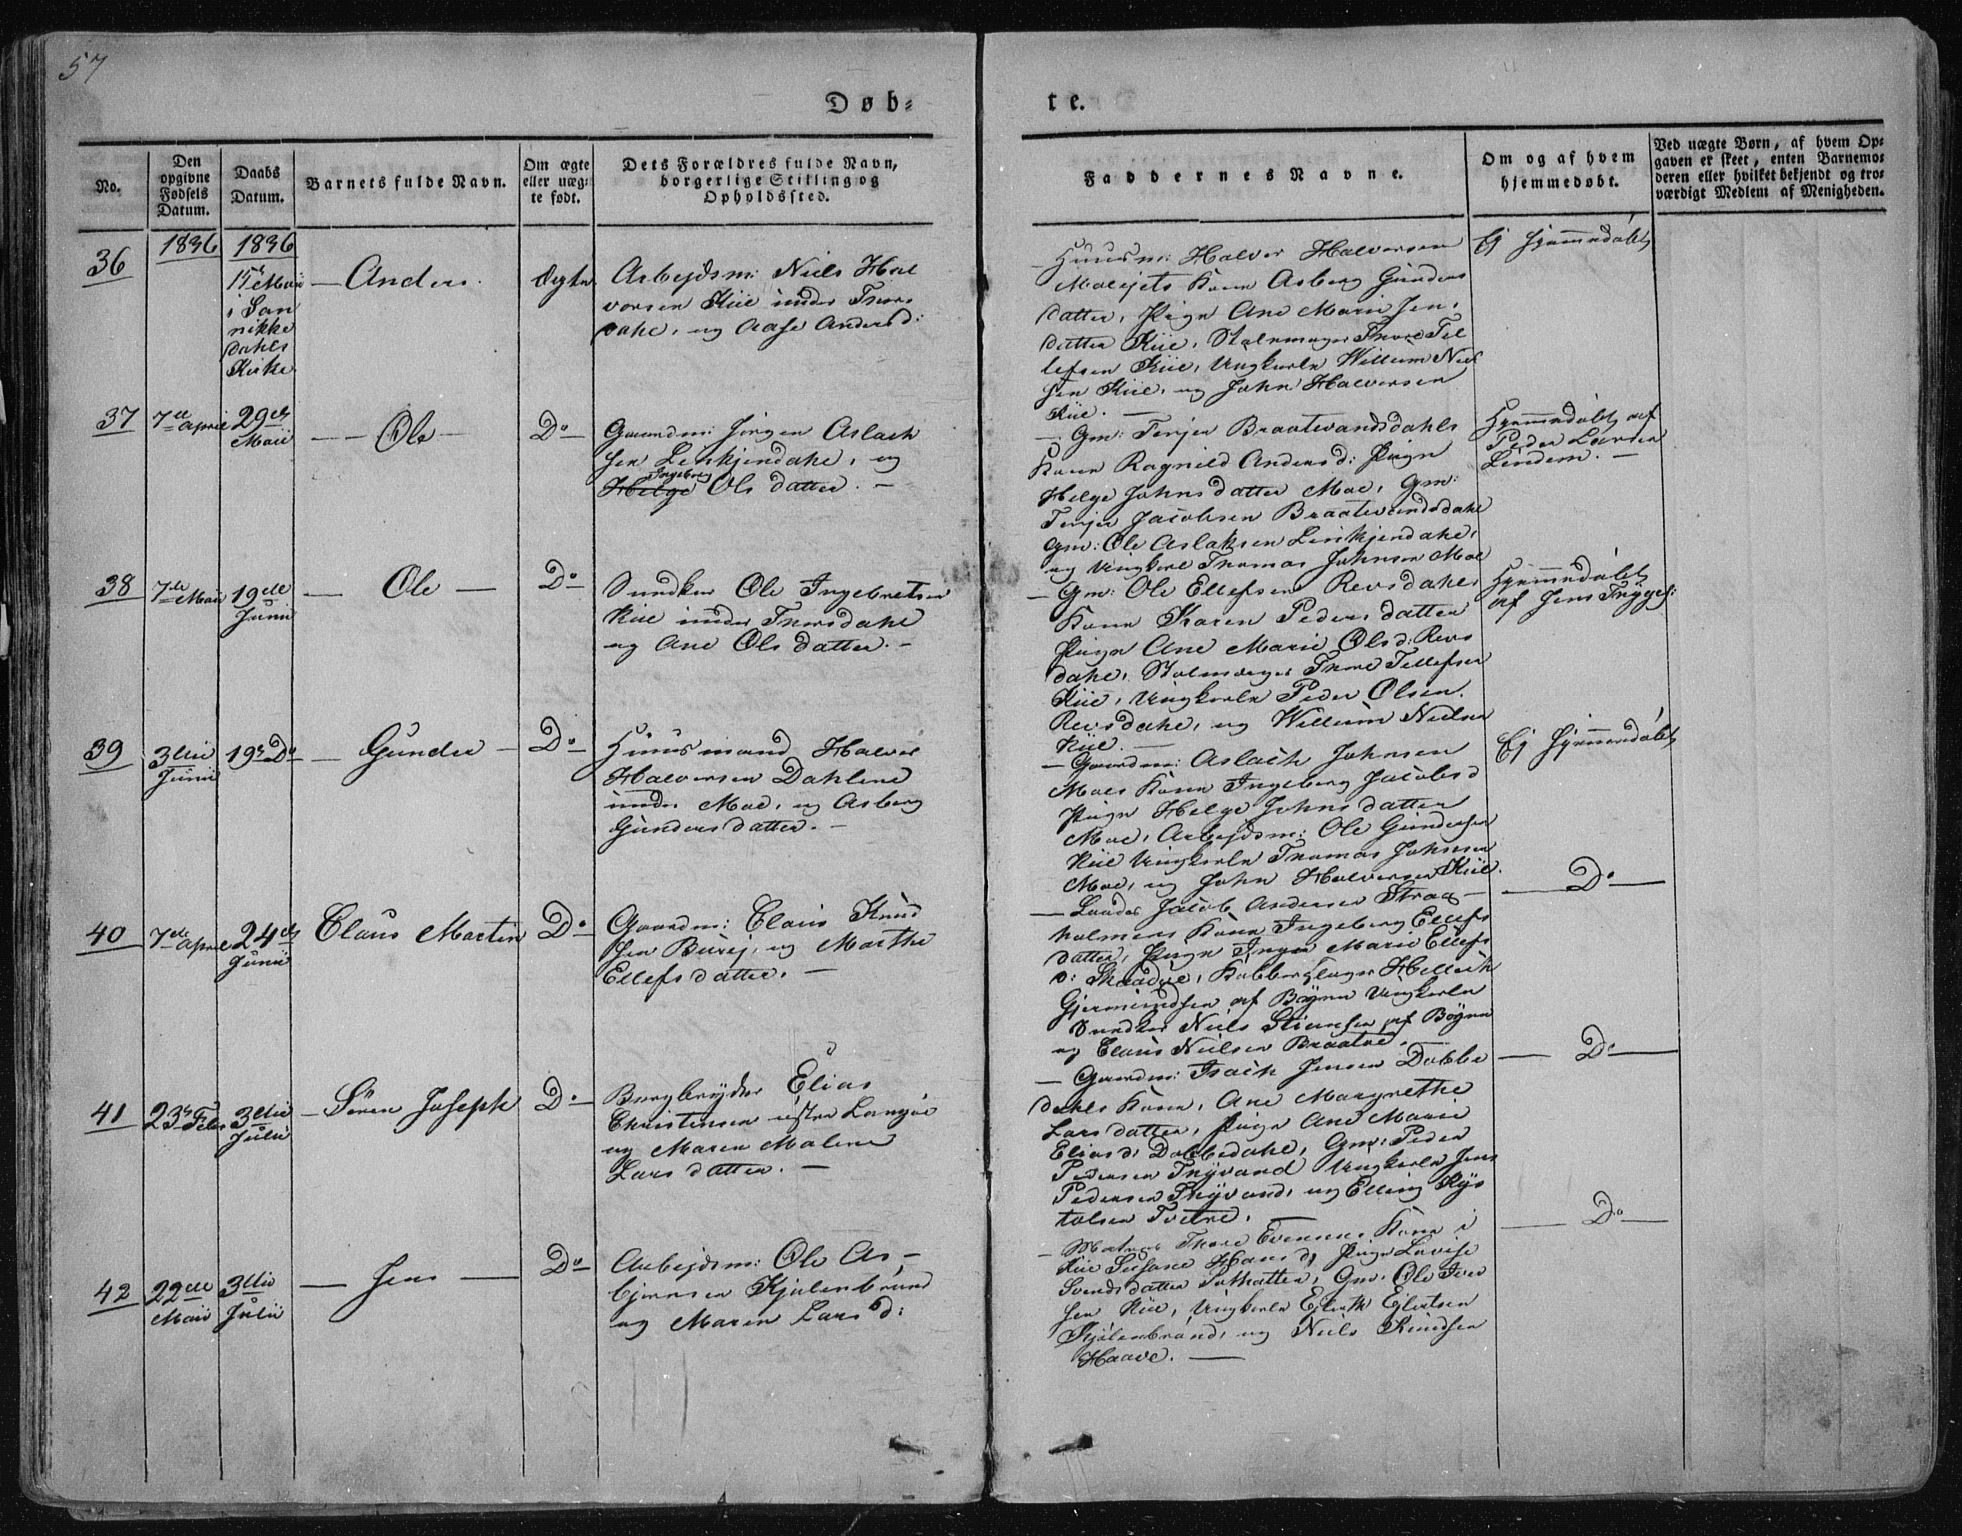 57
Døb-
te.
No.
Den opgivne Fødsels Datum.
Daabs Datum.
Barnets fulde Navn.
Om ægte eller uægte født.
Dets Forældres fulde Navn, borgerlige Stilling og Opholdssted.
Faddernes Navne.
Om og af hvem hjemmedøbt.
Ved uægte Børn, af hvem Opgaven er skeet, enten Barnemoderen eller hvilket bekjendt og troværdigt Medlem af Menigheden.
1836
1836
36
Maii
i San
nikke
dahls
Kirke
Anders
Ægte
Arbejdsm: Niels Hal
vorsen Kiie under Thors
dahl, og Aase Andersd:
Huusm: Halver Halversen
Kone Asberg Gunders
datter, Pige Ane Marie Jens
datter Kiie, Thore Tel
lefsen Kiie, Ungkarln Willum Niel
sen Kiie, og John Halversen
Kiie. —
Ej hjemmedøbt
37
7de April
29de
Maii
— Ole —
Do —
Gaardm: Jørgen Aslach
sen Lenkjendahl, og
Ingeborg
Helge Ols datter. —
— Gm: Terjer Braatvandsdahls
Kone Ragnild Andersd: Pige
Helge Johns datter Moe, Gm:
Terjer Jacobsen Braatvandsdahl
Gm: Ole Aslaksen Lenkjendahl,
og Ungkarl Thomas Johnsen Moe
Hjemmedøbt af
Peder Larsen
Lindem. —
38
7de Maii
19de
Junii
— Ole —
Do —
Ole Ingebretsen
Kiie under Thorsdahl
og Ane Ols datter. —
— Gm: Ole Ellefsen Revsdahls
Kone Karen Peders datter
Pige Ane Marie Olsd: Revs
dahl, Thore Tellefsen
Kiie, Ungkarln Peder Olsen
Revsdahl, og Willum Nielsen
Kiie. —
Hjemmedøbt
af Jens
39
3die
Junii
19de Do
— Gunder —
Do —
Huusmand Halver
Halversen Dahlene
under Moe, og Asberg
Gunders datter. —
— Gaardm: Aslach Johnsen
Moes Kone Ingeberg Jacobsd
Pige Helge Johns datter
Moe, Arbejdsm: Ole Gundersen
Kiie Ungkarln Thomas Johnsen
Moe, og John Halversen Kiie.
Ej hjemmedøbt
40
7de April
24de
Junii
Claus Martin
Do —
Gaardm: Claus Knud
sen og Marthe
Ellefs datter. —
— Jacob Andersen Straa
holmens Kone Ingeberg Ellefs
datter, Pige Marie Ellefs
d: Skaadøe,
af Bøyen Ungkarln
Niels af Bøyen
og Claus Nielsen Braatøe. —
— Do —
41
23de Febr
3die
Julii
— Søren Joseph
Do —
Elias
Christensen østre Langøe
og Maren Malene
Lars datter. —
— Gaardm: Isach Jensen Dobbe
dahls Kone, Ane Margrethe
Lars datter, Pige Ane Marie
Eliasd: Dobbedahl, Gm: Peder
Pedersen Ungkarln Jens
Pedersen og Elling
— Do —
42
22de
Maii
3die
Julii
— Jens —
Do —
Arbejdsm: Ole As-
bjørnsen Kjølenbrand
og Maren Larsd:
Thore Evensens Kone i
Kiie
Gm: Ole Iver
sen Kiie, Ungkarln Ejlerth Ejlertsen
Kjølenbrand, og Niels Knudsen
Haave. —
— Do —